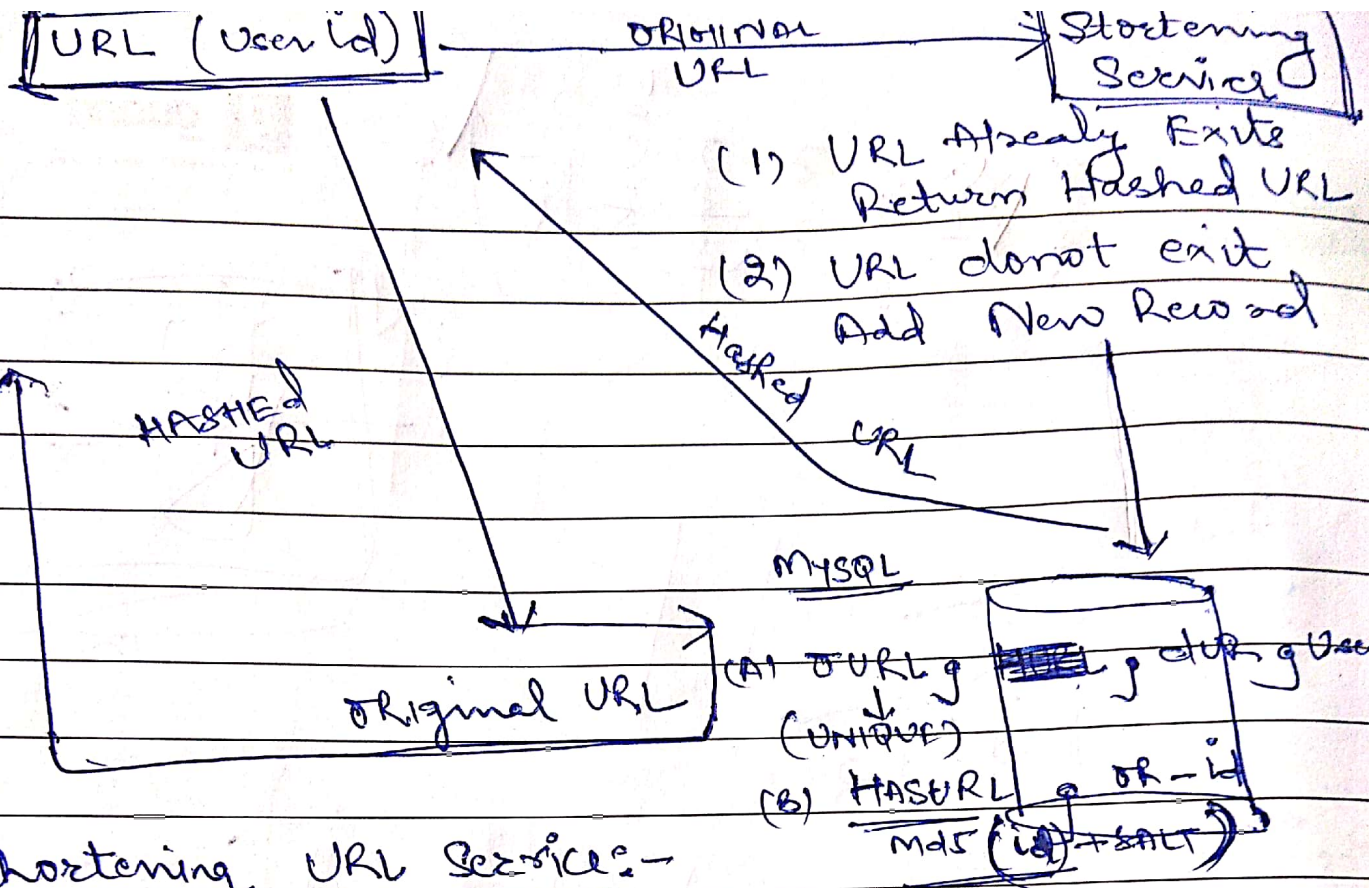 URL (User id)
ORIGINAL
URL
Stortening
Service
(1) URL Already Exits
Return Hashed URL
(2) URL donot exit
Add New Record
Hashed
URL
HASHEd
URL
MYSQL
(A) OURL, , dur, Use
(UNIQUE)
original URL
(B) HASURL, OR-id
md5 (id + SALT)
hortening URL Service:-